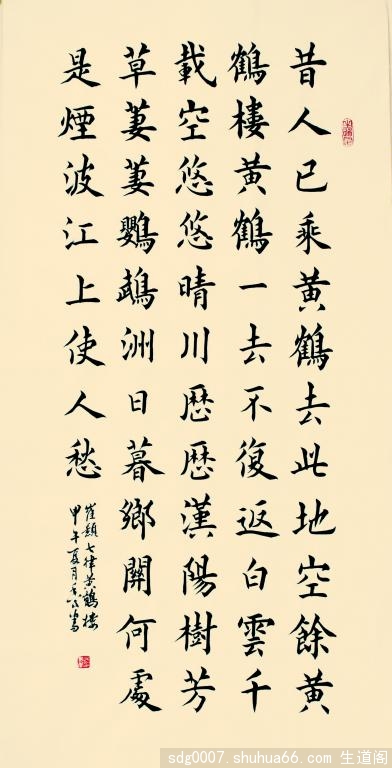 昔人已乘黄鶴去此地空餘黄
鶴樓黄鶴一去不復返白雲千
載空悠悠晴川歷歷漢陽樹芳
草萋萋鸚鵡洲日暮鄉關何處
是煙波江上使人愁
崔顥七律黄鶴樓
甲午夏月書
sdg0007.shuhua66.com 生道阁